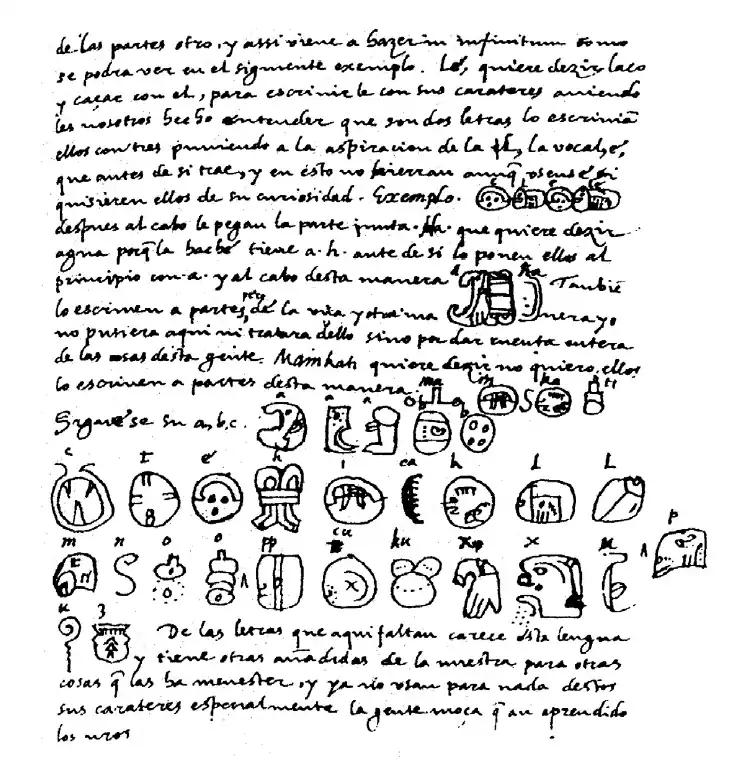 de las partes otro, y assi viene a hazer in infinitum como
se podra ver en el siguiente exemplo. Lé, quiere dezir laço
y caçar con el, para escrivir le con sus carateres aviendo
les nosotros hecho entender que son dos letras lo escrivian
ellos con tres puniendo a la aspiracion de la l, la vocal, é,
que antes de si trae, y en esto no hierran aunq̃ usense si
quisieren ellos de su curiosidad. Exemplo.
despues al cabo le pegan la parte junta. Ha. que quiere dezir
agua porq̃ la haché tiene a. h. ante de si lo ponen ellos al
principio con a. y al cabo desta manera a ha Tanbiē
lo escriven a partes, pero de la una y otra ma nera yo
no pusiera aqui ni tratara dello sino por dar cuenta entera
de las cosas desta gente. Mainkati quiere dezir no quiero, ellos
lo escriven a partes desta manera. ma i n ka ti
Siguese su a, b, c. a a a b b
c t é h i ca k l l
m n o o pp cu ku x x u p
u z De las letras que aqui faltan carece esta lengua
y tiene otras añadidas de la nuestra para otras
cosas q̃ las ha menester, y ya no usan para nada destos
sus carateres especialmente la gente moça q̃ an aprendido
los nros